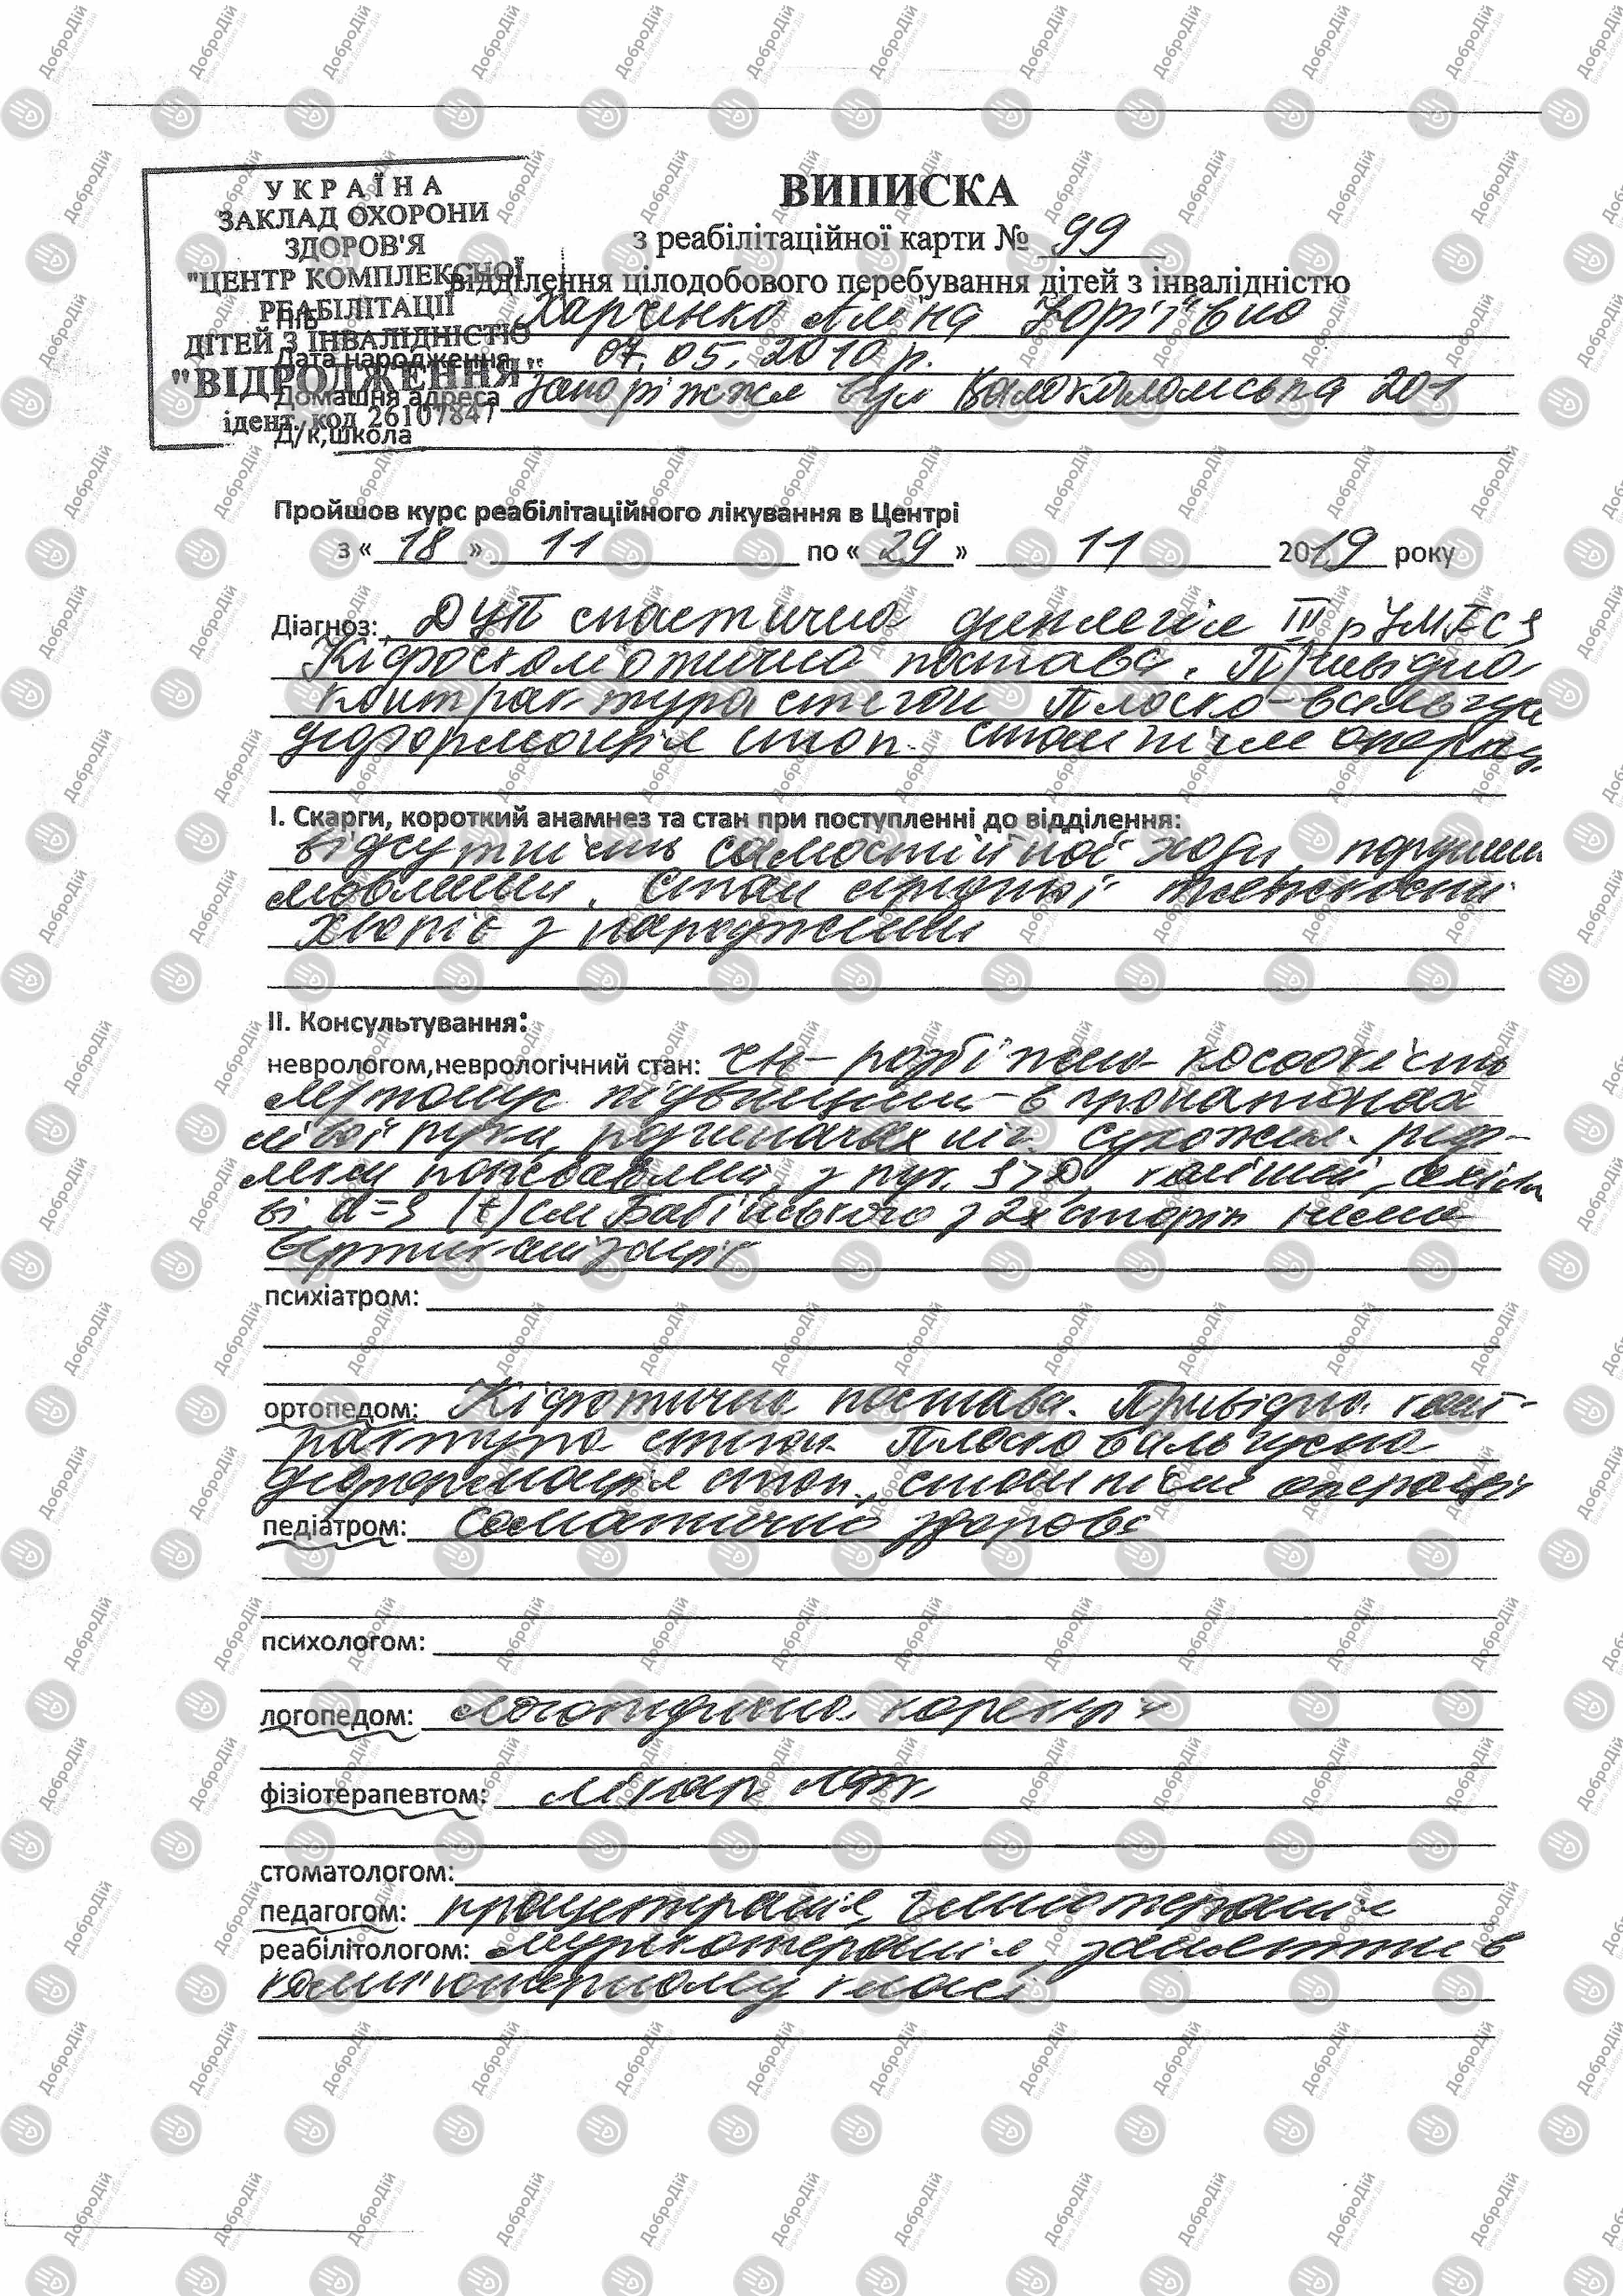 УКРАЇНА
ЗАКЛАД ОХОРОНИ
ЗДОРОВ'Я
"ЦЕНТР КОМПЛЕКСНОЇ
РЕАБІЛІТАЦІЇ
ДІТЕЙ З ІНВАЛІДНІСТЮ
"ВІДРОДЖЕННЯ"
ідент. код 26107847
ВИПИСКА
з реабілітаційної карти № 99
відділення цілодобового перебування дітей з інвалідністю
ПІБ Харченко Аліна Юріївна
Дата народження 07.05.2010 р.
Домашня адреса Запоріжжя вул 201
Д/к,школа
Пройшов курс реабілітаційного лікування в Центрі
з « 18 » 11 по « 29 » 11 2019 року
Діагноз: ДЦП спастична диплегія III р
Кіфосколіотична постава. Привідна
контрактура стегон Плоско-вальгусна
деформація стоп. стан після операц
І. Скарги, короткий анамнез та стан при поступленні до відділення:
відсутність самостійної ходи, порушення
мовлення. Стан середньої тяжкості
хворіє з народження
ІІ. Консультування:
неврологом,неврологічний стан: ЧН – розбіжна косоокість
м/тонус підвищений в пронаторах
лівої руки, розгиначах ніг. сухожил. реф-
лекси пожвавлені, з рук. S>D, колінні, ахіло
ві d=s (+) см Бабінського з 2х сторін немає
вертикалізації
психіатром:
ортопедом: Кіфотична постава. Привідна конт-
рактура стегон Плосковальгусна
деформація стоп., стан після операції
педіатром: Соматично здорова
психологом:
логопедом: логопедична корекція
фізіотерапевтом: лікар
стоматологом:
педагогом: працетерапія,
реабілітологом: музикотерапія, заняття в
комп'ютерному класі
ДоброДій
Біржа Добрих Дій